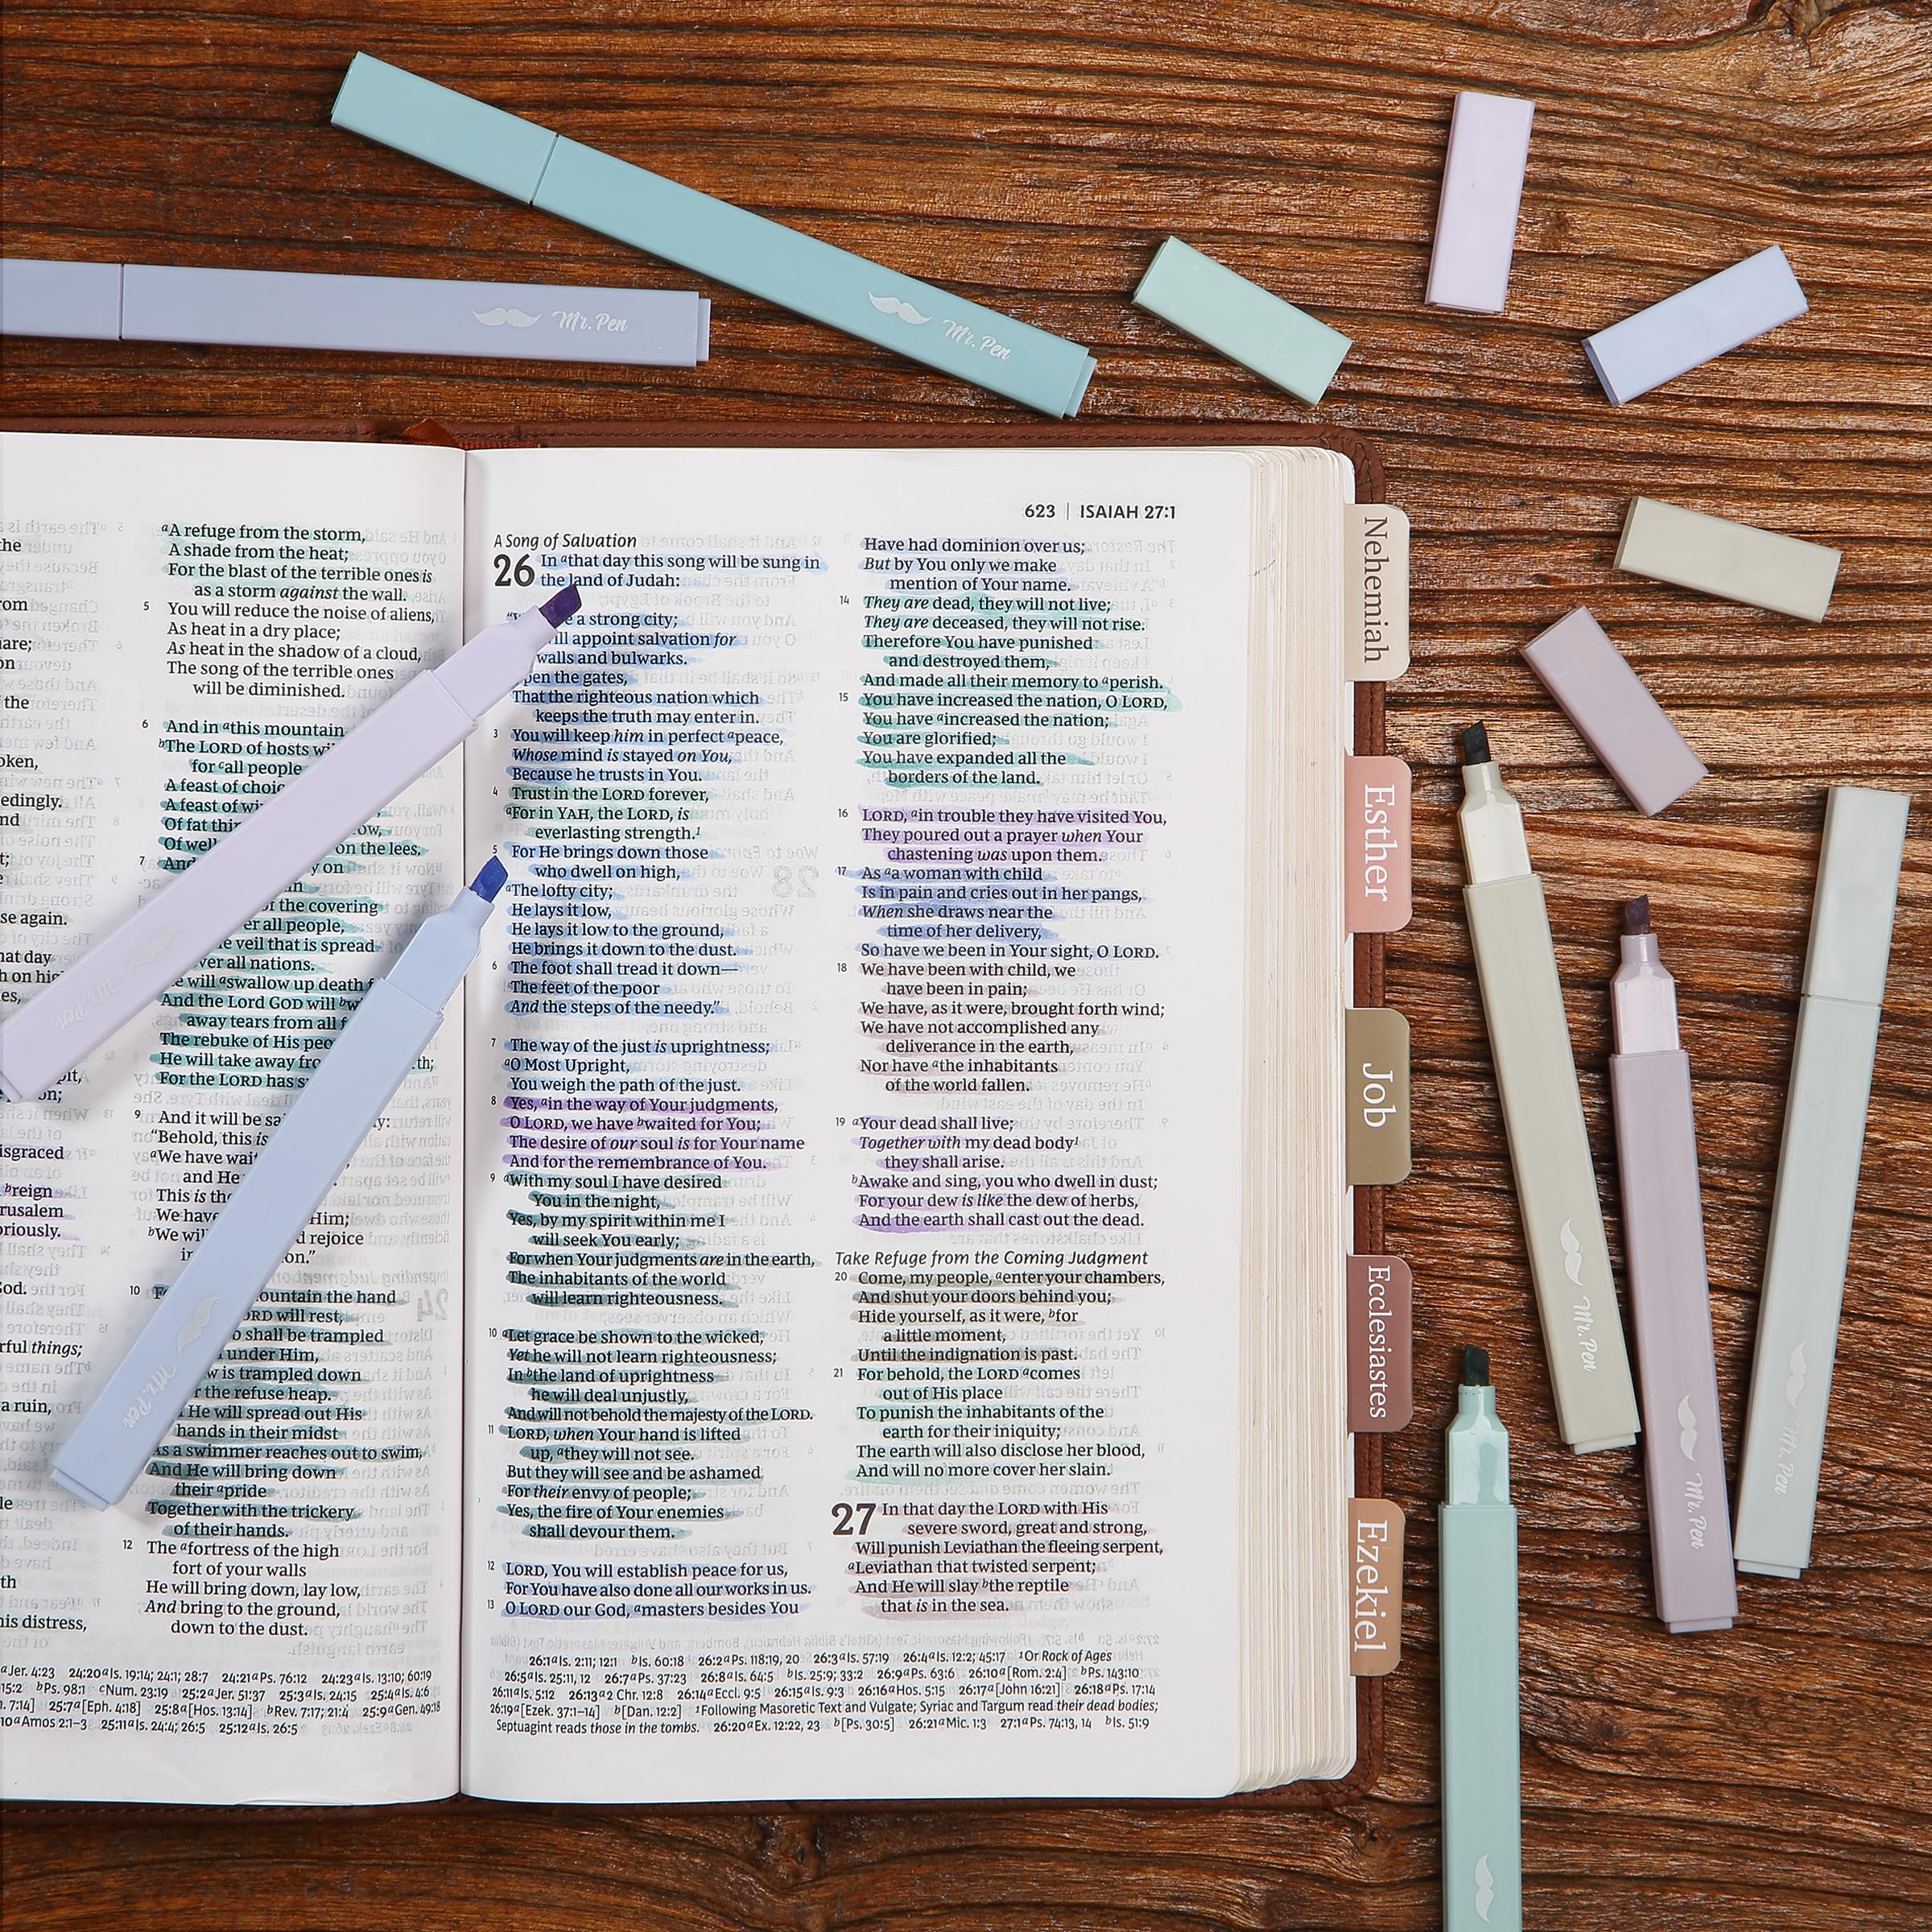 Mr. Pen
Mr. Pen
aA refuge from the storm,
A shade from the heat;
For the blast of the terrible ones is
as a storm against the wall.
5 You will reduce the noise of aliens,
As heat in a dry place;
As heat in the shadow of a cloud,
The song of the terrible ones
will be diminished.
6 And in athis mountain
bThe LORD of hosts
for call people
A feast of
A feast of
Of fat
Of on the lees.
7 And on
of the covering
all people,
veil that is spread
over all nations.
will aswallow up death
And the Lord GOD will
away tears from all
The rebuke of His
He will take away
For the LORD has
9 And it will be
"Behold, this is
aWe have
and He
This is the
We have Him;
bWe will rejoice
10 mountain the hand
LORD will rest,
shall be trampled
under Him,
is trampled down
the refuse heap.
He will spread out His
hands in their midst
As a swimmer reaches out to swim,
And He will bring down
their apride
Together with the trickery
of their hands.
12 The afortress of the high
fort of your walls
He will bring down, lay low,
And bring to the ground,
down to the dust.
the
the
again.
disgraced
breign
God.
things;
a ruin,
his distress,
aJer. 4:23 24:20aIs. 19:14; 24:1; 28:7 24:21aPs. 76:12 24:23aIs. 13:10; 60:19
bPs. 98:1 cNum. 23:19 25:2aJer. 51:37 25:3aIs. 24:15 25:4aIs. 4:6
25:7a[Eph. 4:18] 25:8a[Hos. 13:14] bRev. 7:17; 21:4 25:9aGen. 49:18
aAmos 2:1–3 25:11aIs. 24:4; 26:5 25:12aIs. 26:5
623 | ISAIAH 27:1
A Song of Salvation
26 In athat day this song will be sung in
the land of Judah:
a strong city;
will appoint salvation for
walls and bulwarks.
Open the gates,
That the righteous nation which
keeps the truth may enter in.
3 You will keep him in perfect apeace,
Whose mind is stayed on You,
Because he trusts in You.
4 Trust in the LORD forever,
aFor in YAH, the LORD, is
everlasting strength.1
5 For He brings down those
who dwell on high,
aThe lofty city;
He lays it low,
He lays it low to the ground,
He brings it down to the dust.
6 The foot shall tread it down—
The feet of the poor
And the steps of the needy."
7 The way of the just is uprightness;
aO Most Upright,
You weigh the path of the just.
8 Yes, ain the way of Your judgments,
O LORD, we have bwaited for You;
The desire of our soul is for Your name
And for the remembrance of You.
9 aWith my soul I have desired
You in the night,
Yes, by my spirit within me I
will seek You early;
For when Your judgments are in the earth,
The inhabitants of the world
will learn righteousness.
10 aLet grace be shown to the wicked,
Yet he will not learn righteousness;
In bthe land of uprightness
he will deal unjustly,
And will not behold the majesty of the LORD.
11 LORD, when Your hand is lifted
up, athey will not see.
But they will see and be ashamed
For their envy of people;
Yes, the fire of Your enemies
shall devour them.
12 LORD, You will establish peace for us,
For You have also done all our works in us.
13 O LORD our God, amasters besides You
Have had dominion over us;
But by You only we make
mention of Your name.
14 They are dead, they will not live;
They are deceased, they will not rise.
Therefore You have punished
and destroyed them,
And made all their memory to aperish.
15 You have increased the nation, O LORD,
You have aincreased the nation;
You are glorified;
You have expanded all the
borders of the land.
16 LORD, ain trouble they have visited You,
They poured out a prayer when Your
chastening was upon them.
17 As aa woman with child
Is in pain and cries out in her pangs,
When she draws near the
time of her delivery,
So have we been in Your sight, O LORD.
18 We have been with child, we
have been in pain;
We have, as it were, brought forth wind;
We have not accomplished any
deliverance in the earth,
Nor have athe inhabitants
of the world fallen.
19 aYour dead shall live;
Together with my dead body1
they shall arise.
bAwake and sing, you who dwell in dust;
For your dew is like the dew of herbs,
And the earth shall cast out the dead.
Take Refuge from the Coming Judgment
20 Come, my people, aenter your chambers,
And shut your doors behind you;
Hide yourself, as it were, bfor
a little moment,
Until the indignation is past.
21 For behold, the LORD acomes
out of His place
To punish the inhabitants of the
earth for their iniquity;
The earth will also disclose her blood,
And will no more cover her slain.
27 In that day the LORD with His
severe sword, great and strong,
Will punish Leviathan the fleeing serpent,
aLeviathan that twisted serpent;
And He will slay bthe reptile
that is in the sea.
26:1aIs. 2:11; 12:1 bIs. 60:18 26:2aPs. 118:19, 20 26:3aIs. 57:19 26:4aIs. 12:2; 45:17 1Or Rock of Ages
26:5aIs. 25:11, 12 26:7aPs. 37:23 26:8aIs. 64:5 bIs. 25:9; 33:2 26:9aPs. 63:6 26:10a[Rom. 2:4] bPs. 143:10
26:11aIs. 5:12 26:13a2 Chr. 12:8 26:14aEccl. 9:5 26:15aIs. 9:3 26:16aHos. 5:15 26:17a[John 16:21] 26:18aPs. 17:14
26:19a[Ezek. 37:1–14] b[Dan. 12:2] 1Following Masoretic Text and Vulgate; Syriac and Targum read their dead bodies;
Septuagint reads those in the tombs. 26:20aEx. 12:22, 23 b[Ps. 30:5] 26:21aMic. 1:3 27:1aPs. 74:13, 14 bIs. 51:9
Nehemiah
Esther
Job
Ecclesiastes
Ezekiel
Mr. Pen
Mr. Pen
Mr. Pen
Mr. Pen
Mr. Pen